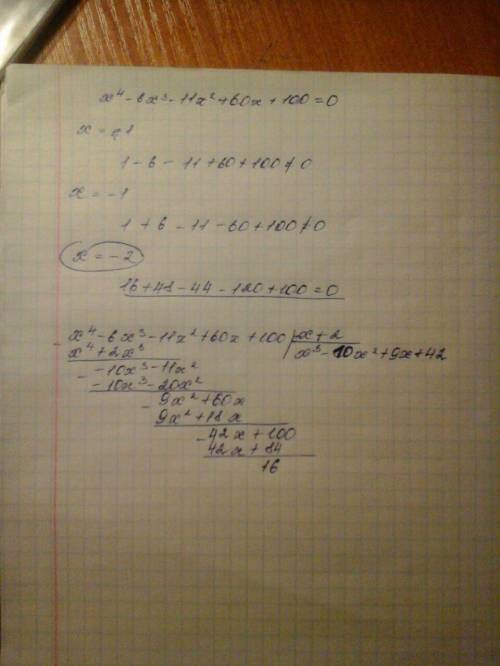 x⁴ - 6x³ - 11x² + 60x + 100 = 0
x = 1
1 - 6 - 11 + 60 + 100 ≠ 0
x = -1
1 + 6 - 11 - 60 + 100 ≠ 0
x = -2
16 + 48 - 44 - 120 + 100 = 0
x⁴ - 6x³ - 11x² + 60x + 100 | x + 2
x⁴ + 2x³ x³ - 10x² + 9x + 42
- 10x³ - 11x²
- 10x³ - 20x²
9x² + 60x
9x² + 18x
42x + 100
42x + 84
16